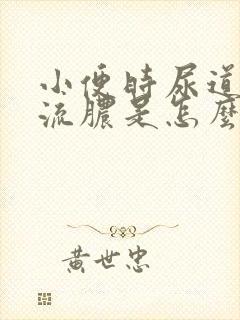 小便時尿道
流膿是怎麼
黃世忠